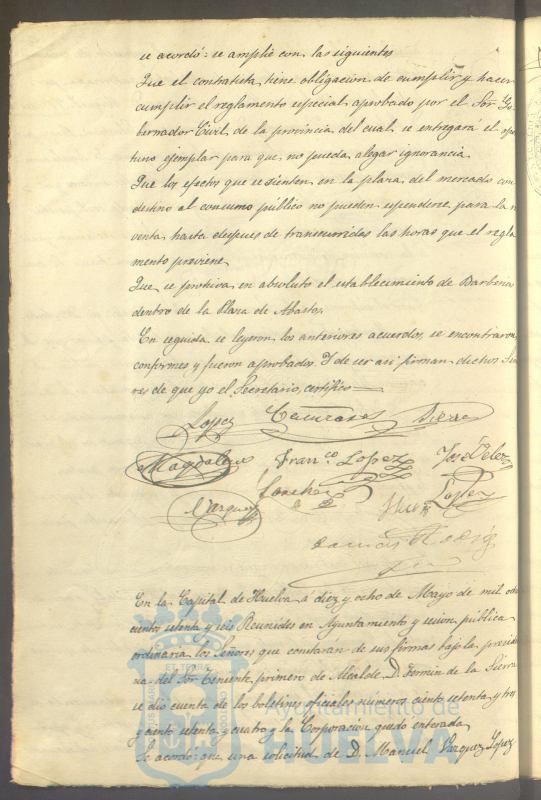 se acordó: se amplie con las siguientes
Que el contratista tiene obligacion de cumplir y hacer
cumplir el reglamento especial aprobado por el Sor. Go-
bernador Civil de la provincia del cual se entregará el opor
tuno ejemplar para que no pueda alegar ignorancia
Que los efectos que se sienten en la plaza del mercado con
destino al consumo público no pueden espenderse para la r
venta hasta despues de transcurridas las horas que el regla
mento previene
Que se prohiva en absoluto el establecimiento de Barberia
dentro de la Plaza de Abastos.
En seguida se leyeron los anteriores acuerdos, se encontraron
conformes y fueron aprobados. Y de ser asi firman dichos Seño
res de que yo el Secretario, certifico
Lopez Sierra
Magdalena Franco. Lopez José Velez
Vazquez Sanchez Lopez
En la Capital de Huelva á diez y ocho de Mayo de mil ocho
cientos setenta y seis Reunidos en Ayuntamiento y sesion pública
ordinaria los Señores que constarán de sus firmas bajo la presiden
cia del Sor. Teniente primero de Alcalde D. Fermin de la Sierra
se dió cuenta de los boletines oficiales numeros ciento setenta y tres
y ciento setenta y cuatro y la Corporacion quedó enterada
Se acordó: que una solicitud de D. Manuel Vazquez Lopez
Ayuntamiento de
HUELVA